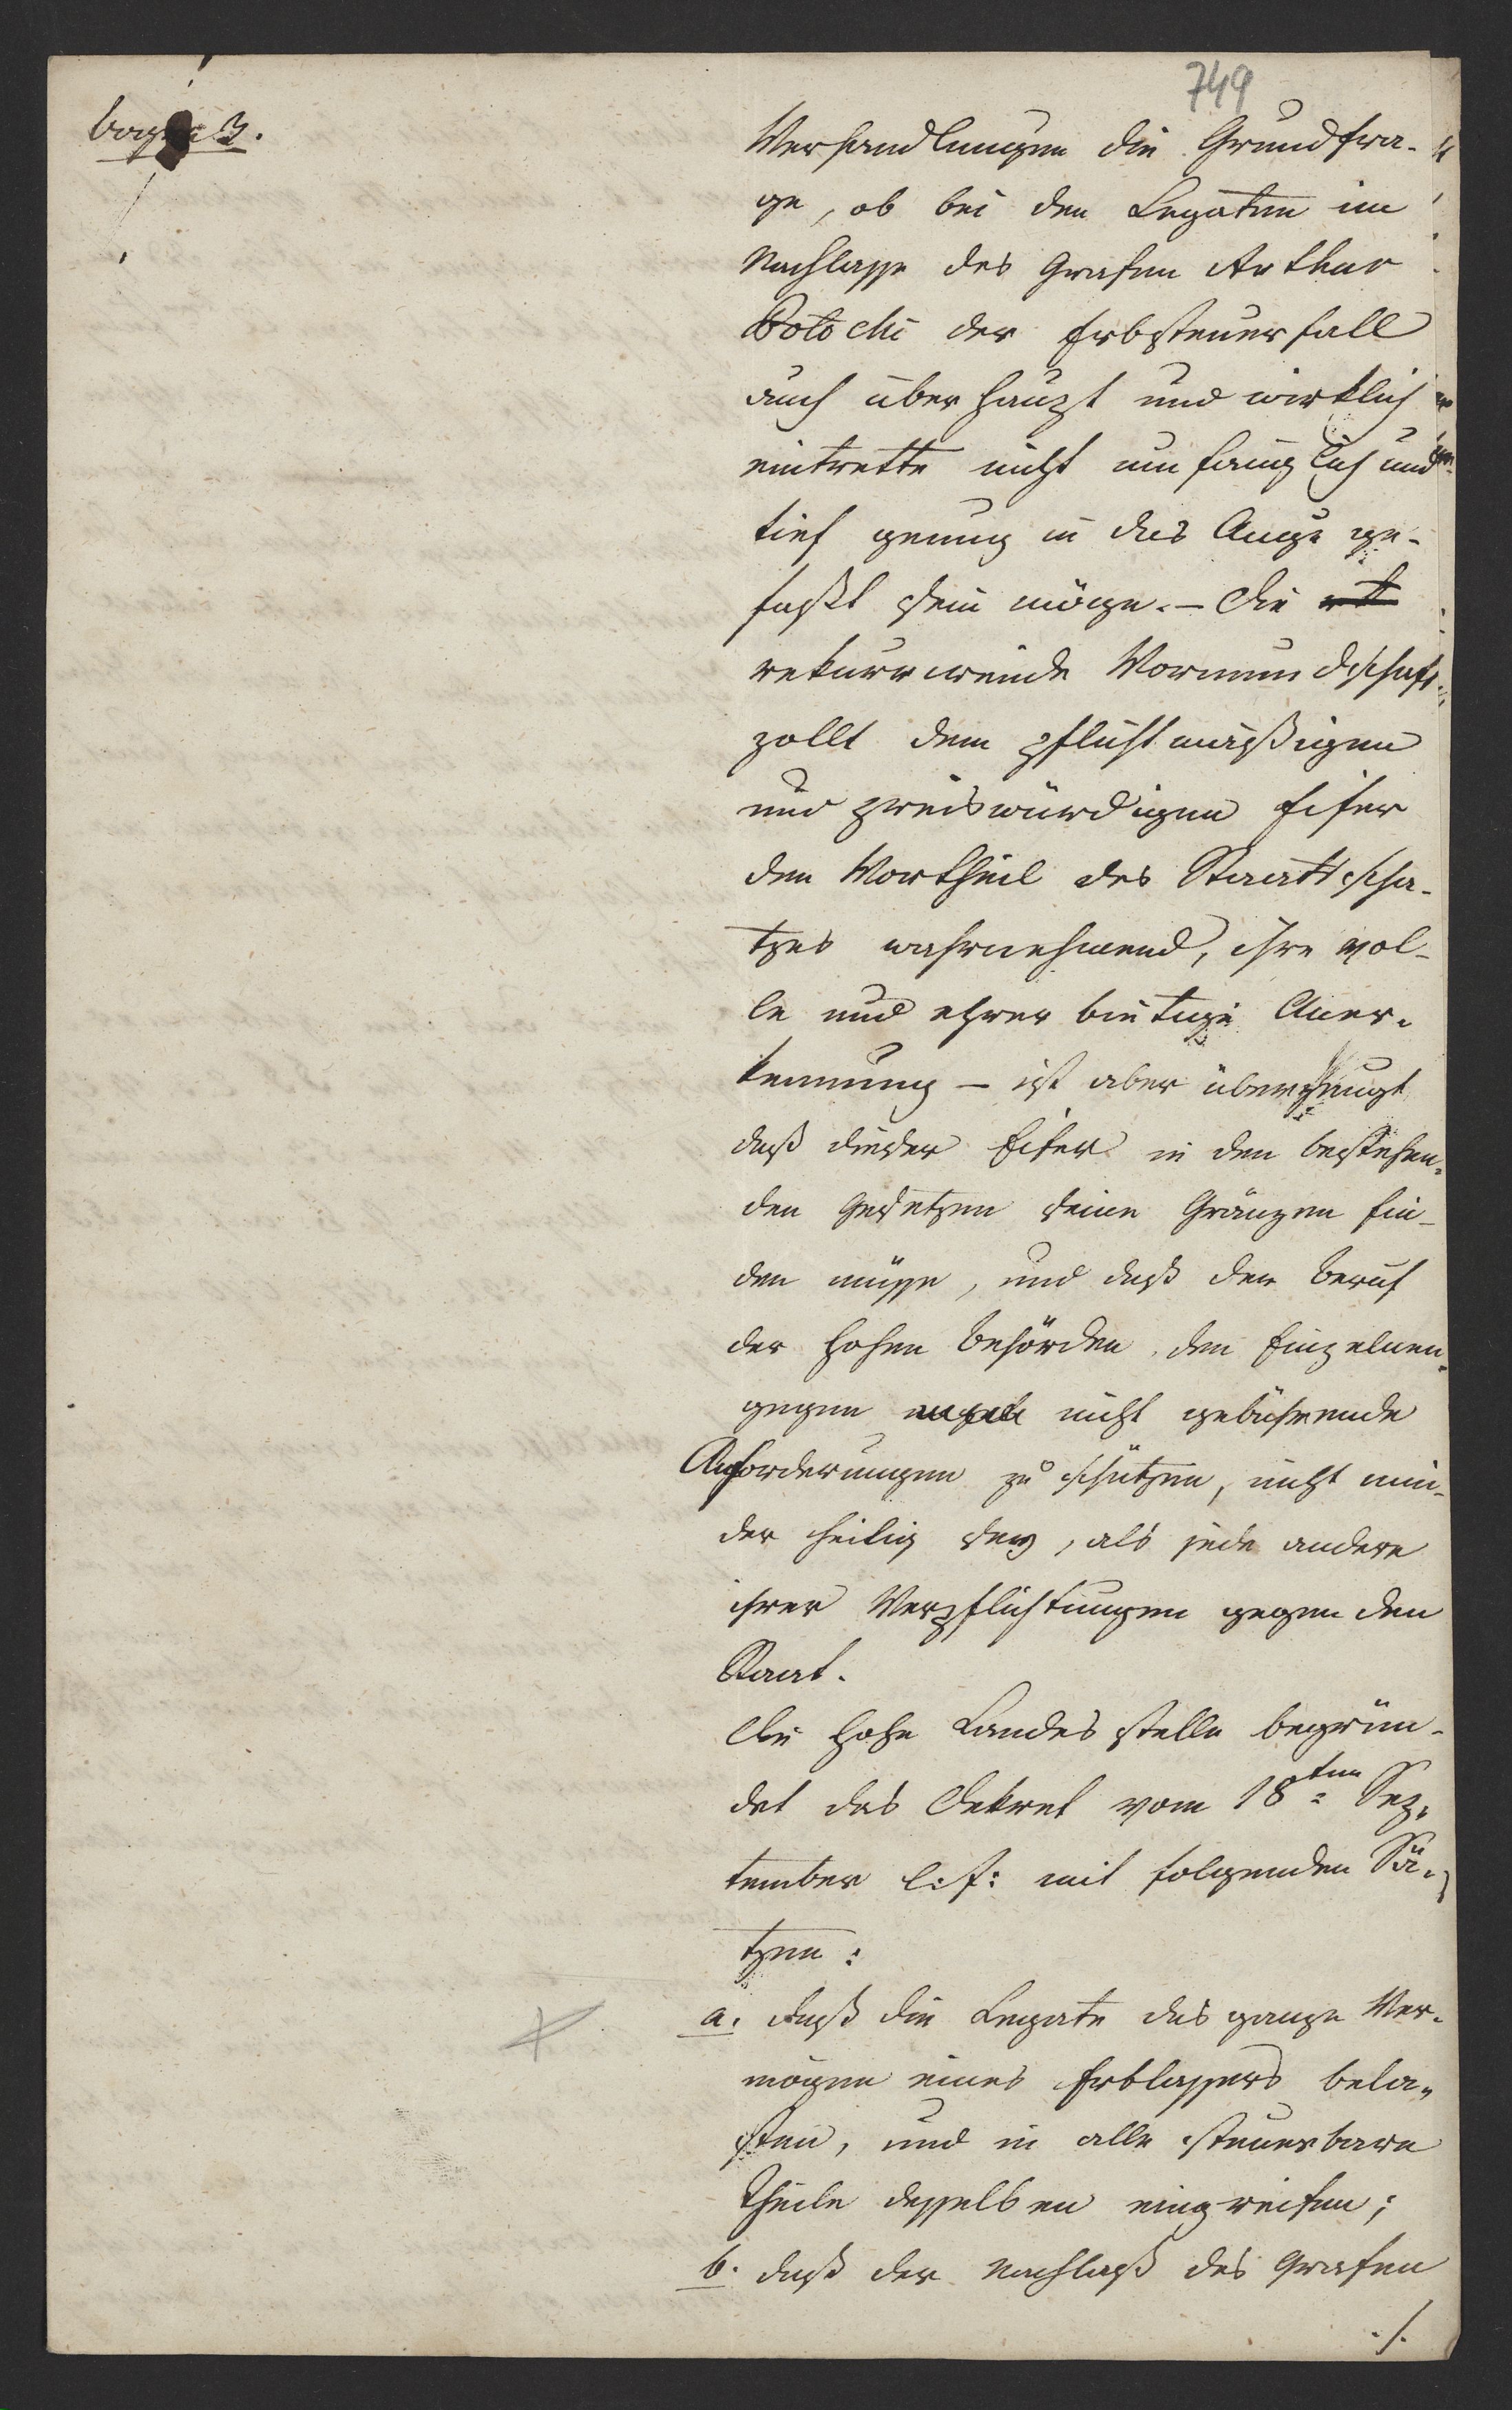 749
bogen 3.
Verhandlungen die Grundfra-
ge, ob bei den Legaten im
Nachlasse des Grafen Arthur
Potocki der Erbsteuerfall
auch überhaupt und wirklich
eintrette nicht umfänglich und
tief genug in das Auge ge-
faßt sein möge. – Die
rekurrirende Vormundschaft
zollt dem pflichtmäßigen
und preiswürdigen Eifer
den Vortheil des Staatsscha-
tzes wahrnehmend, ihre vol-
le und ehrerbietige Aner-
kennung – ist aber überzeugt
daß dieser Eifer in den bestehen-
den Gesetzen seine Gränzen fin-
den müsse, und daß der Beruf
der hohen Behörden den Einzelnen
gegen nicht gebührende
Anforderungen zu schützen, nicht min-
der heilig sey, als jede andere
ihrer Verpflichtungen gegen den
Staat.
Die hohe Landesstelle begrün-
det das Dekret vom 18ten Sep-
tember l: J: mit folgenden Sä-
tzen:
a. daß die Legate das ganze Ver-
mögen eines Erblassers bela-
sten, und in alle steuerbare
Theile desselben eingreifen;
b. daß der Nachlaß des Grafen
./.